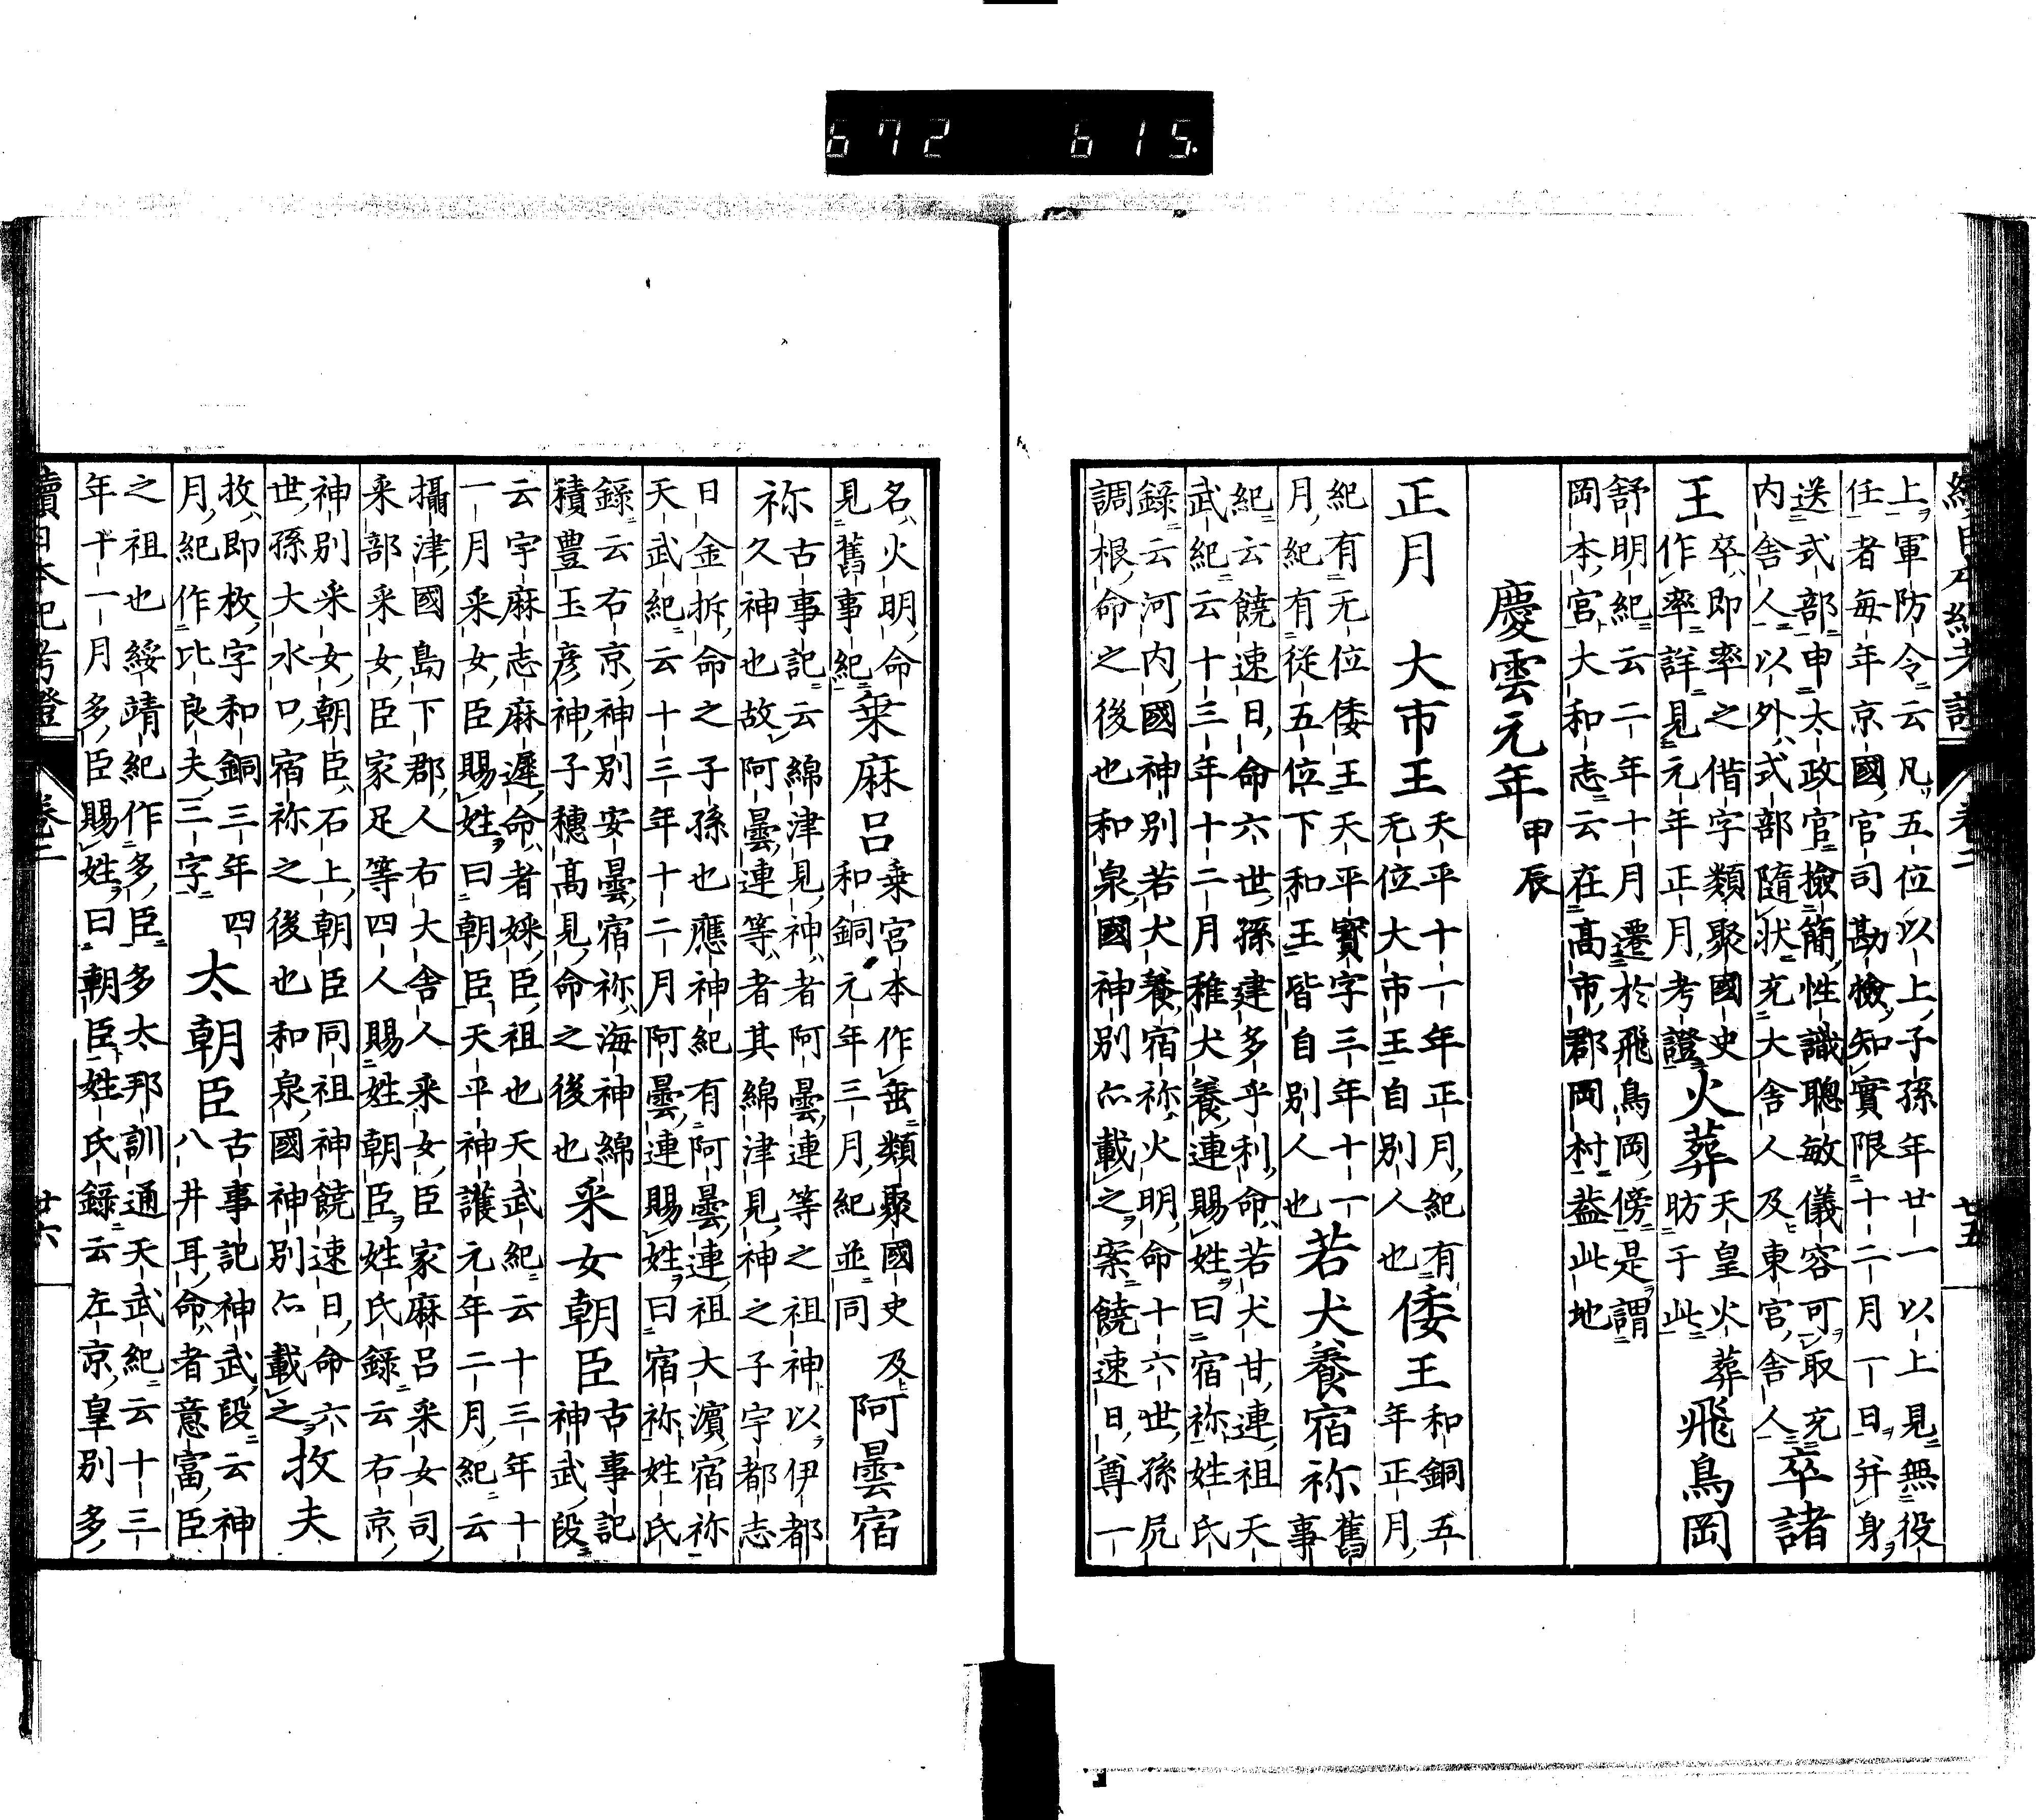 672 615.
上軍防令云凡五位以上子孫年廿一以上見無役
任者每年京國官司勘檢知實限十二月一日并身
送式部申太政官撿簡性識聰敏儀容可取充
内舍人以外式部隨狀充大舍人及東宮舍人
卒諸
王
卒即率之借字類聚國史
作率詳見元年正月考證
火葬
天皇火葬
昉于此
飛鳥岡
舒明紀云二年十月遷於飛鳥岡傍是謂
岡本宮大和志云在高市郡岡村蓋此地
慶雲元年甲辰
正月 大市王
天平十一年正月紀有
无位大市王自別人也
倭王
和銅五年正月
紀有无位倭王天平寶字三年十一
月紀有從五位下和王皆自別人也
若犬養宿祢
舊事
紀云饒速日命六世孫建多乎利命若犬甘連祖天
武紀云十三年十二月稚犬養連賜姓曰宿祢姓氏
錄云河内國神別若犬養宿祢火明命十六世孫尻
調根命之後也和泉國神別亦載之案饒速日尊一
續日本紀考證 卷二 廿五
名火明命
見舊事紀
乗麻呂
乗宮本作垂類聚國史及
和銅元年三月紀並同
阿曇宿
祢
古事記云綿津見神者阿曇連等之祖神以伊都
久神也故阿曇連等者其綿津見神之子宇都志
日金拆命之子孫也應神紀有阿曇連祖大濱宿祢
天武紀云十三年十二月阿曇連賜姓曰宿祢姓氏
錄云右京神別安曇宿祢海神綿
積豊玉彦神子穗高見命之後也
采女朝臣
古事記
神武段
云宇麻志麻遲命者婇臣祖也天武紀云十三年十
一月采女臣賜姓曰朝臣天平神護元年二月紀云
攝津國島下郡人右大舍人采女臣家麻呂采女司
采部采女臣家足等四人賜姓朝臣姓氏錄云右京
神別采女朝臣石上朝臣同祖神饒速日命六
世孫大水口宿祢之後也和泉國神別亦載之
枚夫
枚即枚字和銅三年四
月紀作比良夫三字
太朝臣
古事記神武段云神
八井耳命者意富臣
之祖也綏靖紀作多臣多太邦訓通天武紀云十三
年十一月多臣賜姓曰朝臣姓氏錄云左京皇別多
續日本紀考證 卷二 廿六